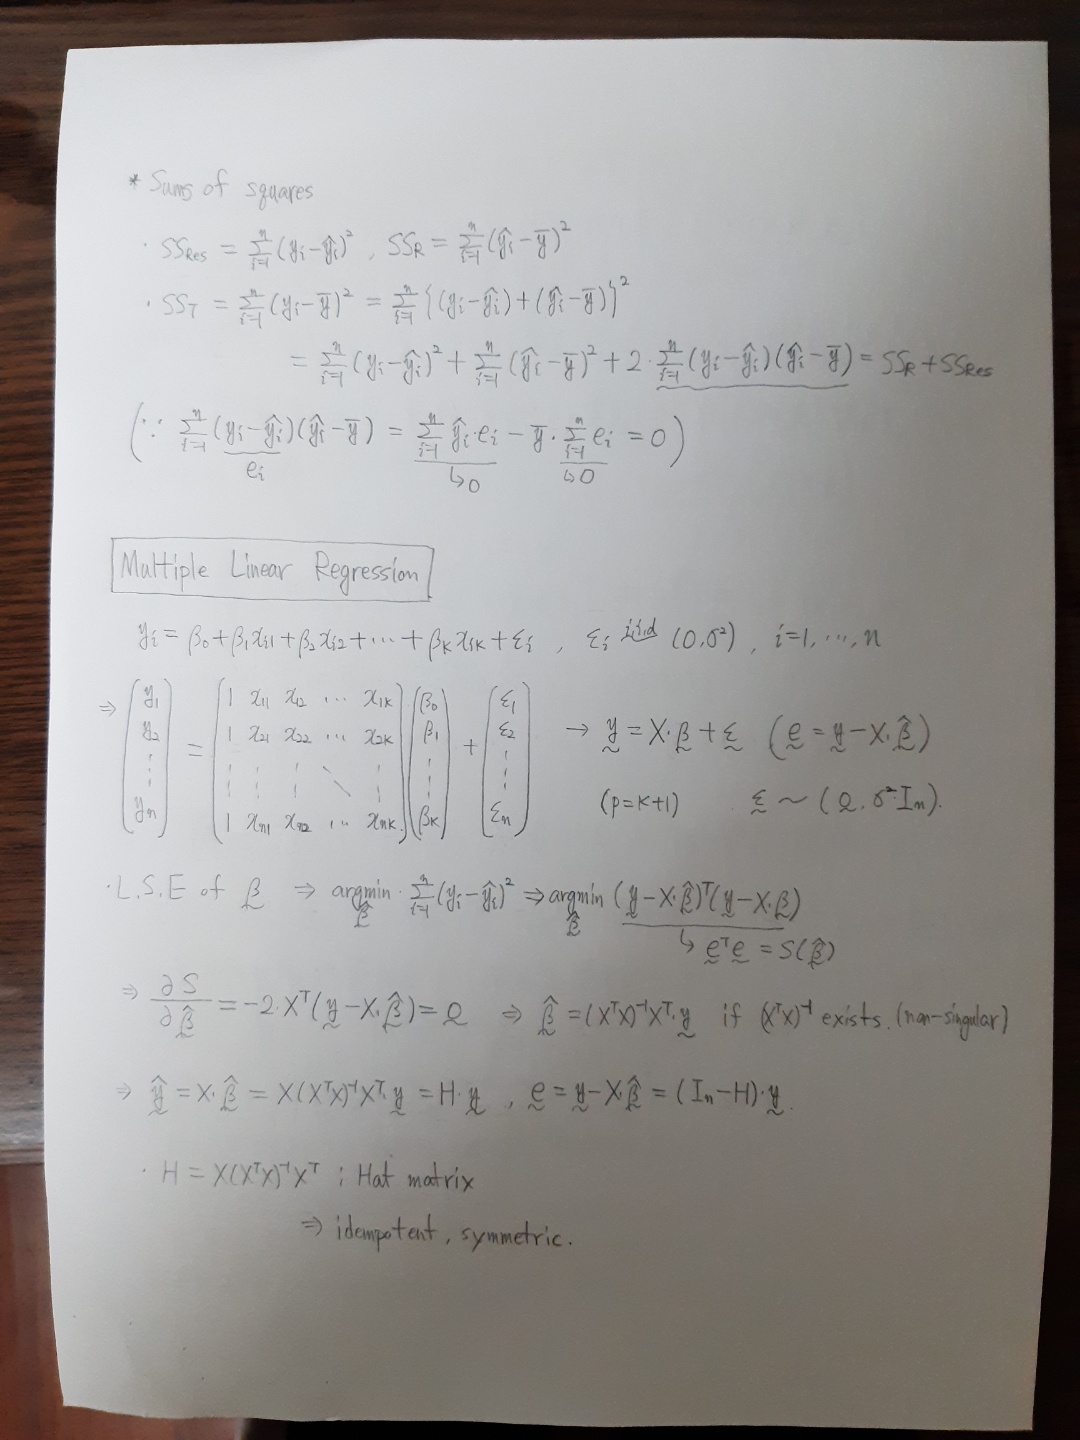 * Sums of squares
· SS_Res = Σ_{i=1}^{n} (y_i − ŷ_i)², SS_R = Σ_{i=1}^{n} (ŷ_i − ȳ)²
· SS_T = Σ_{i=1}^{n} (y_i − ȳ)² = Σ_{i=1}^{n} {(y_i − ŷ_i) + (ŷ_i − ȳ)}²
= Σ_{i=1}^{n} (y_i − ŷ_i)² + Σ_{i=1}^{n} (ŷ_i − ȳ)² + 2· Σ_{i=1}^{n} (y_i − ŷ_i)(ŷ_i − ȳ) = SS_R + SS_Res
(∵ Σ_{i=1}^{n} (y_i − ŷ_i)(ŷ_i − ȳ) = Σ_{i=1}^{n} ŷ_i·e_i − ȳ· Σ_{i=1}^{n} e_i = 0)
e_i ↳0 ↳0
Multiple Linear Regression
y_i = β_0 + β_1 x_{i1} + β_2 x_{i2} + ··· + β_K x_{iK} + ε_i , ε_i i.i.d ~ (0, σ²), i=1, ···, n
⇒ (y_1 y_2 ⋮ y_n) = (1 x_{11} x_{12} ··· x_{1K}
1 x_{21} x_{22} ··· x_{2K}
⋮ ⋮ ⋮ ⋱ ⋮
1 x_{n1} x_{n2} ··· x_{nK}) (β_0 β_1 ⋮ β_K) + (ε_1 ε_2 ⋮ ε_n) → y = X·β + ε (e = y − X·β̂)
(p=K+1) ε ~ (0, σ²·I_n).
· L.S.E of β ⇒ argmin_β̂ · Σ_{i=1}^{n} (y_i − ŷ_i)² ⇒ argmin_β̂ (y − X·β̂)ᵀ(y − X·β)
↳ eᵀe = S(β̂)
⇒ ∂S/∂β̂ = −2·Xᵀ(y − X·β̂) = 0 ⇒ β̂ = (XᵀX)⁻¹Xᵀ·y if (XᵀX)⁻¹ exists. (non-singular)
⇒ ŷ = X·β̂ = X(XᵀX)⁻¹Xᵀ·y = H·y , e = y − X·β̂ = (I_n − H)·y.
· H = X(XᵀX)⁻¹Xᵀ ; Hat matrix
⇒ idempotent, symmetric.